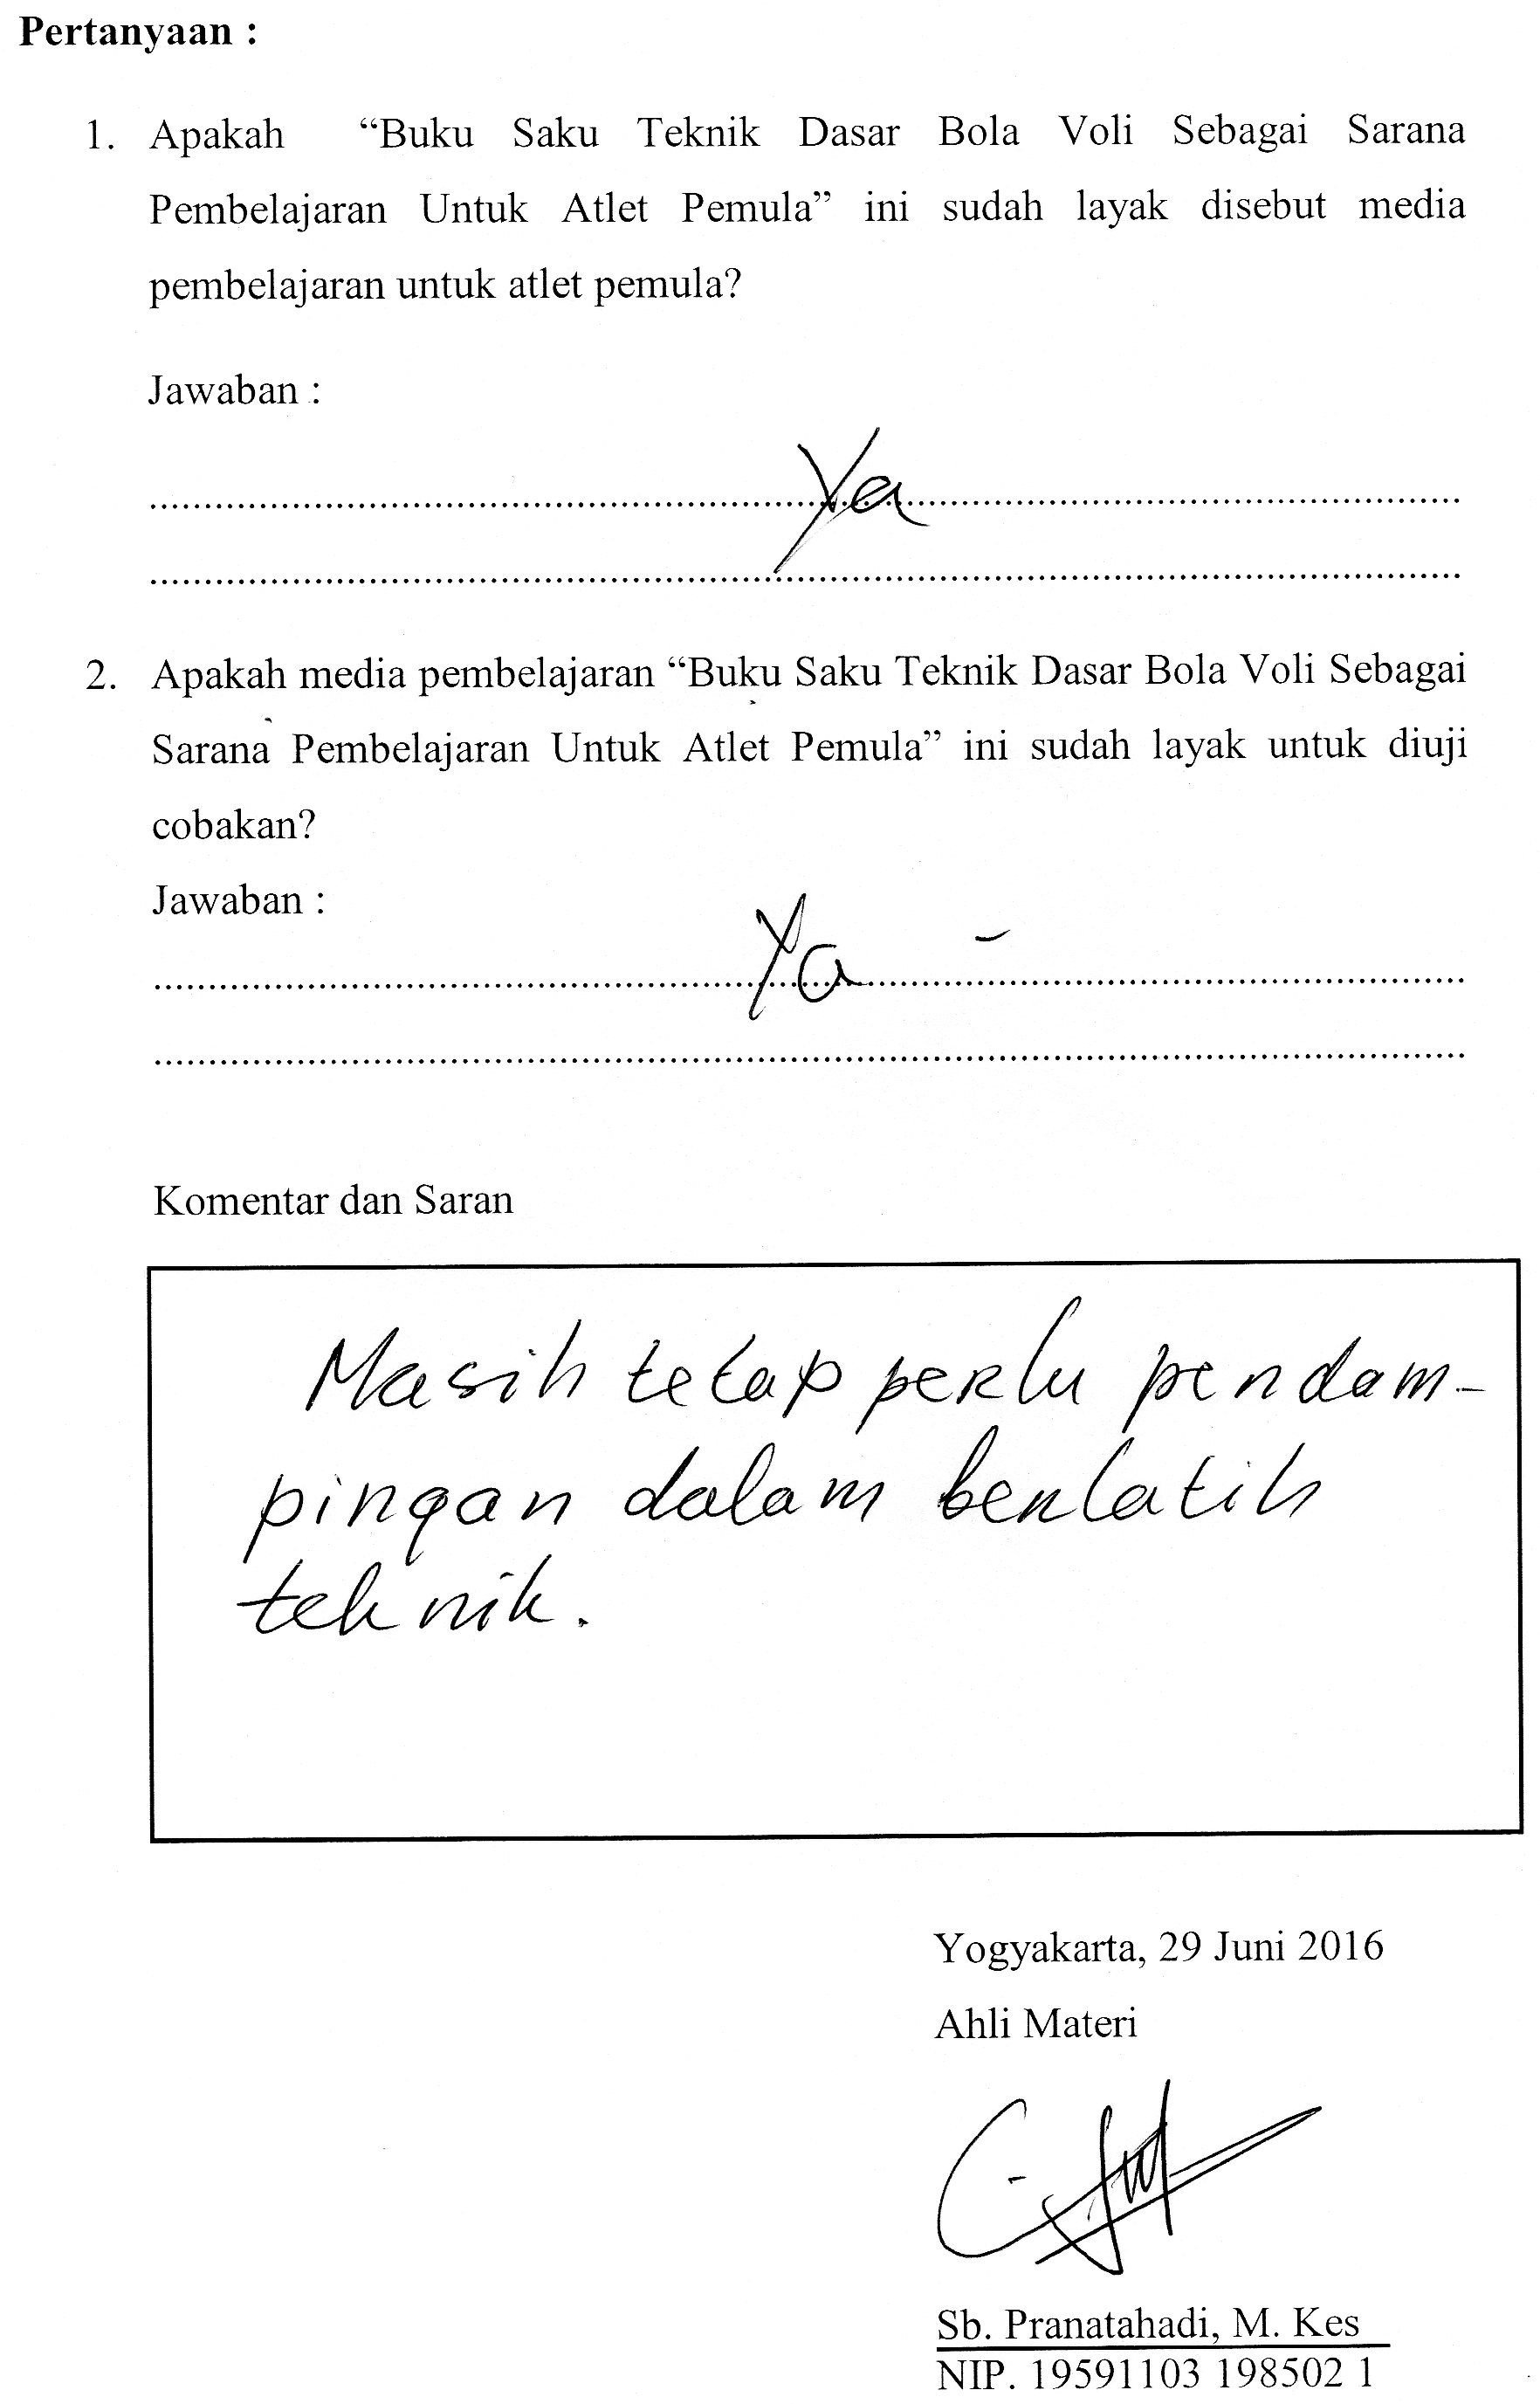 Pertanyaan :
1. Apakah “Buku Saku Teknik Dasar Bola Voli Sebagai Sarana
Pembelajaran Untuk Atlet Pemula” ini sudah layak disebut media
pembelajaran untuk atlet pemula?
Jawaban :
Ya
2. Apakah media pembelajaran “Buku Saku Teknik Dasar Bola Voli Sebagai
Sarana Pembelajaran Untuk Atlet Pemula” ini sudah layak untuk diuji
cobakan?
Jawaban :
Ya
Komentar dan Saran
Masih tetap perlu pendam-
pingan dalam berlatih
teknik.
Yogyakarta, 29 Juni 2016
Ahli Materi
Sb. Pranatahadi, M. Kes
NIP. 19591103 198502 1